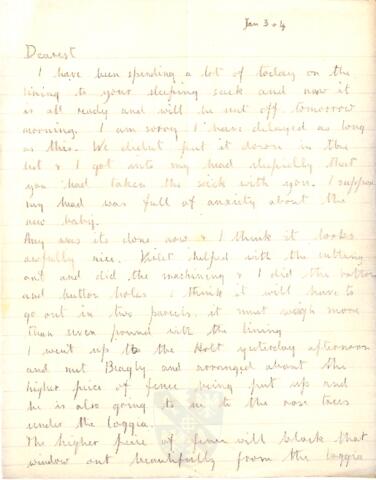 Jan 3 + 4
Dearest
I have been spending a lot of today on the
lining to your sleeping sack and now it
is all ready and will be sent off tomorrow
morning. I am sorry I have delayed as long
as this. We didnt put it down in the
list & I got into my head stupidly that
you had taken the sack with you. I suppose
my head was full of anxiety about the
new baby.
Any was its done now & I think it looks
awfully nice. Violet helped with the cutting
out and did the machining & I did the buttons
and button holes. I think it will have to
go out in two parcels, it must weigh more
than seven pound with the lining
I went up to the Holt yesterday afternoon
and met Beagly and arranged about the
higher peice of fence being put up and
he is also going to see to the rose trees
under the loggia.
The higher peice of fence will block that
window out beautifully from the loggia